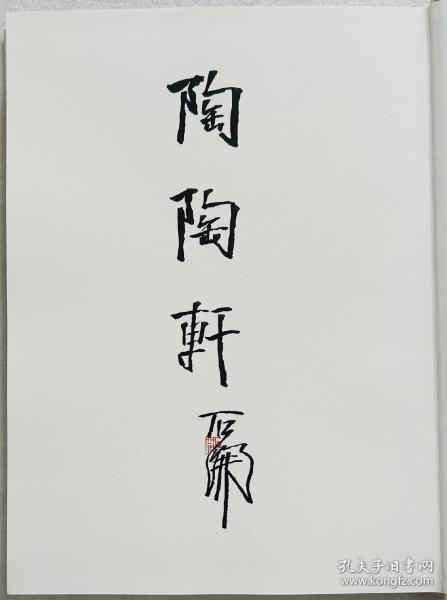 陶陶軒
孔夫子旧书网
www.kongfz.com